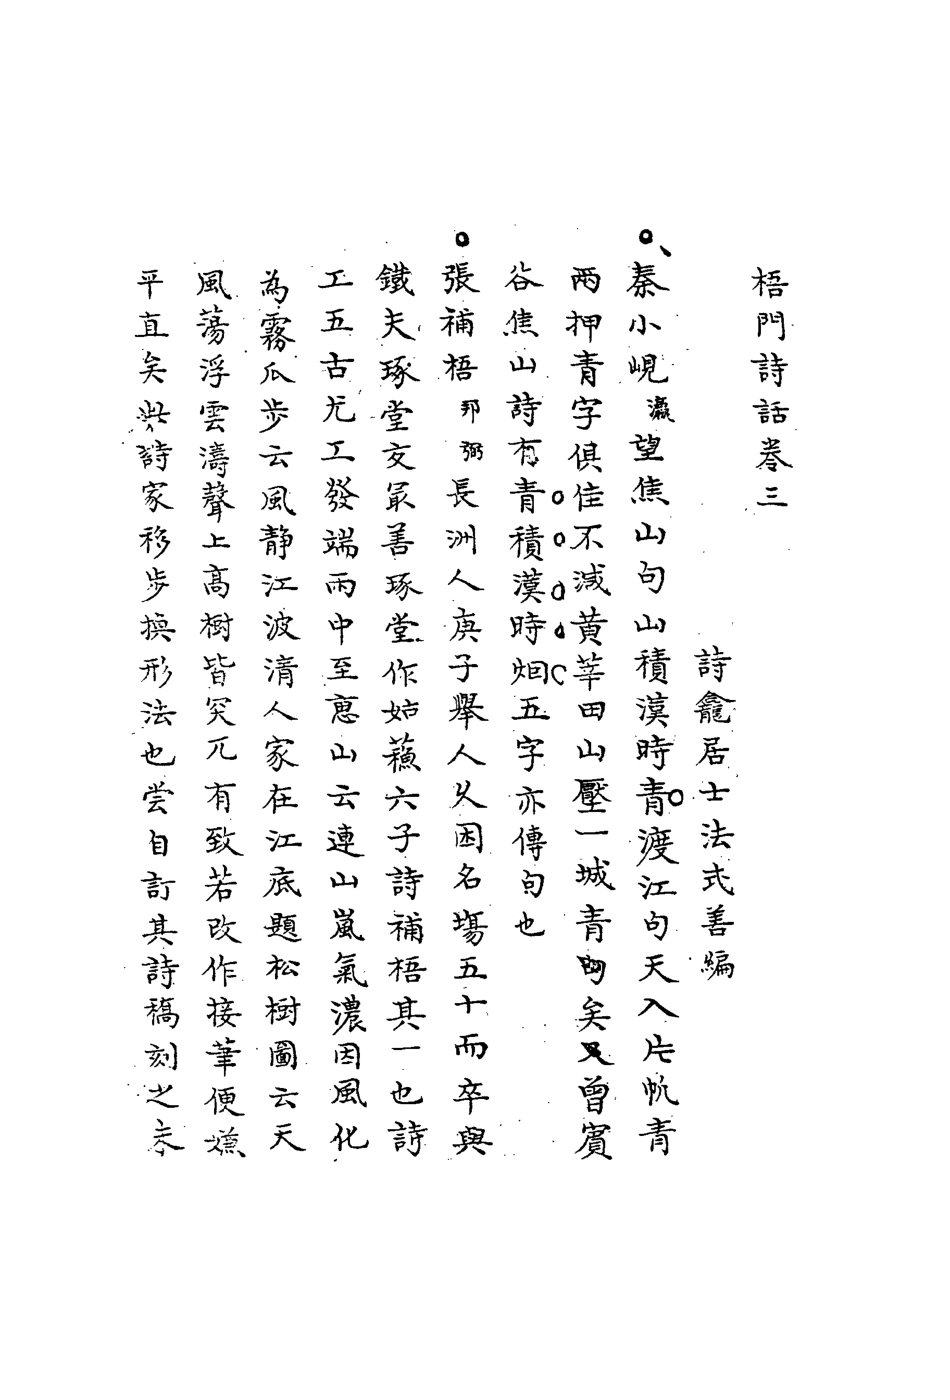 梧門詩話卷三
詩龕居士法式善編
秦小峴瀛望焦山句山積漠時青渡江句天入片帆青
兩押青字俱佳不減黄莘田山壓一城青句矣又曾賓
谷焦山詩有青積漠時烟五字亦傳句也
張補梧邦弼長洲人庚子舉人久困名塲五十而卒與
鐵夫琢堂交㝡善琢堂作姑蘓六子詩補梧其一也詩
工五古尤工發端雨中至惠山云連山嵐氣濃因風化
為霧瓜步云風静江波清人家在江底題松樹圖云天
風蕩浮雲濤聲上高樹皆突兀有致若改作接筆便嫌
平直矣此詩家移步換形法也嘗自訂其詩稿刻之未